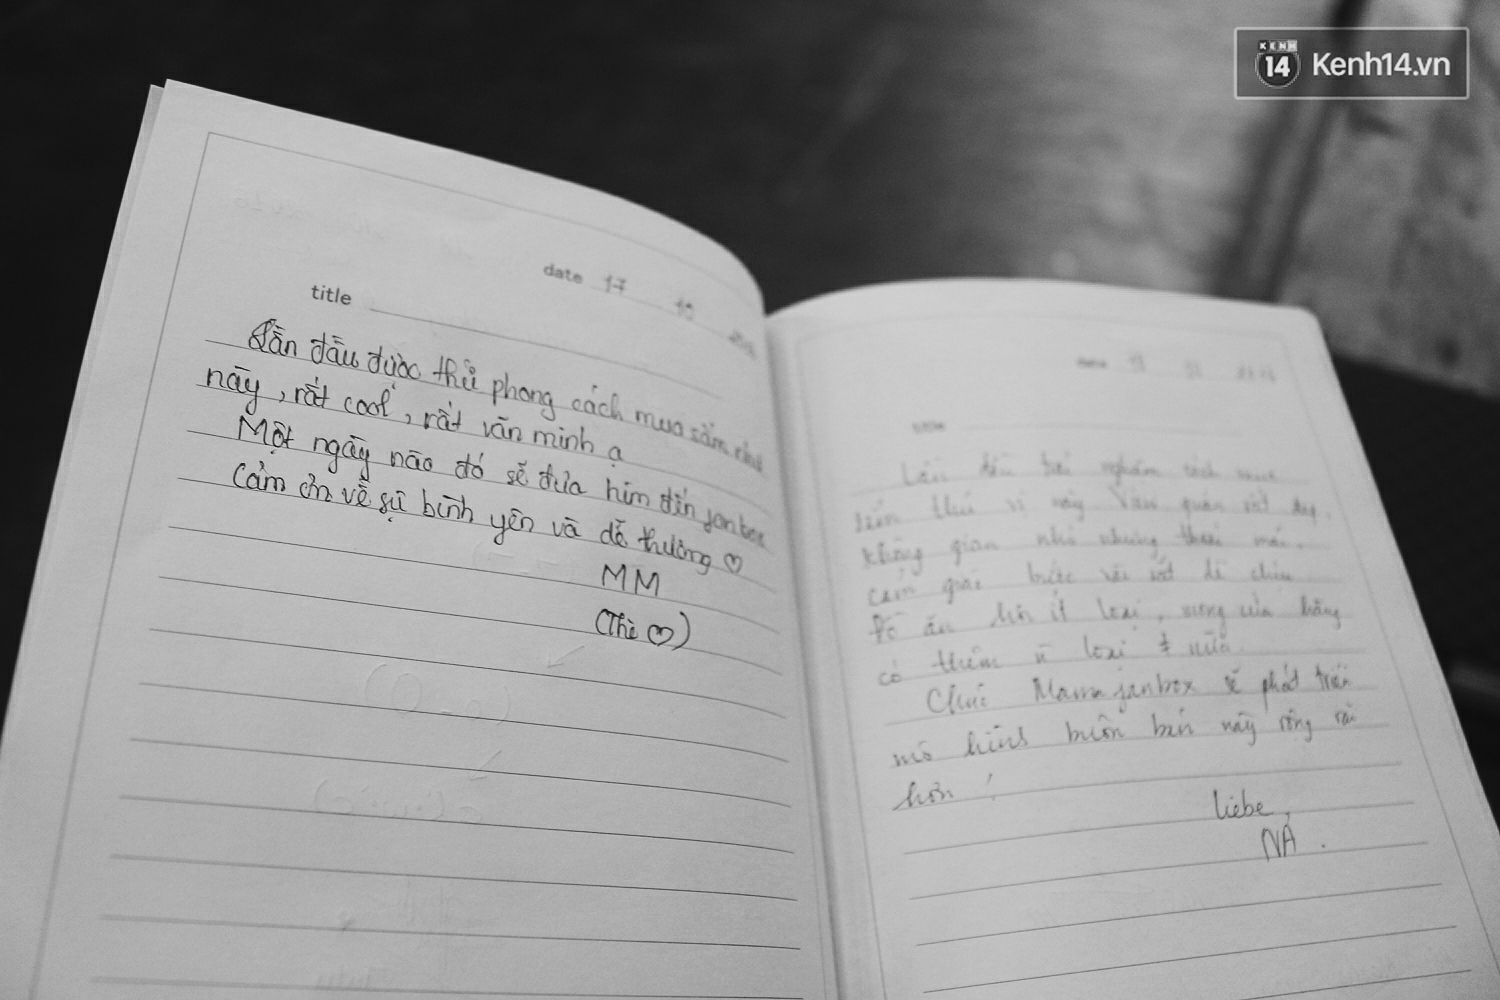 KENH
14
Kenh14.vn
date 17 10
title
Lần đầu được thử phong cách mua sắm như
này, rất cool, rất văn minh ạ
Một ngày nào đó sẽ đưa him đến janbox
Cảm ơn về sự bình yên và dễ thương ♡
MM
(Thì ♡)
date
title
Lần đầu trải nghiệm cách mua
sắm thú vị này. Vào quán rất đẹp,
không gian nhỏ nhưng thoải mái.
cảm giác bước vài rất dễ chịu
Đồ ăn hơi ít loại, mong cửa hàng
có thêm loại nữa.
Chúc Mama janbox sẽ phát triển
mô hình buôn bán này rộng rãi
hơn!
liebe,
NA.